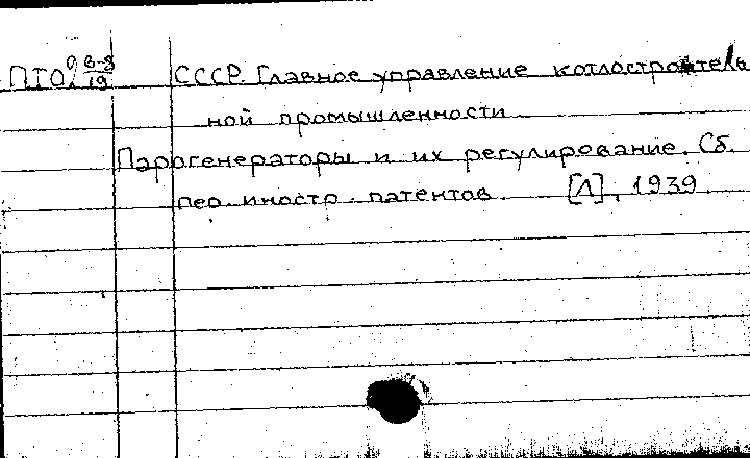 ПТО, СССР. Главное управление котлостроитель
ной промышленности
Парогенераторы и их регулирование. Сб.
пер. иностр. патентов. [Л], 1939.